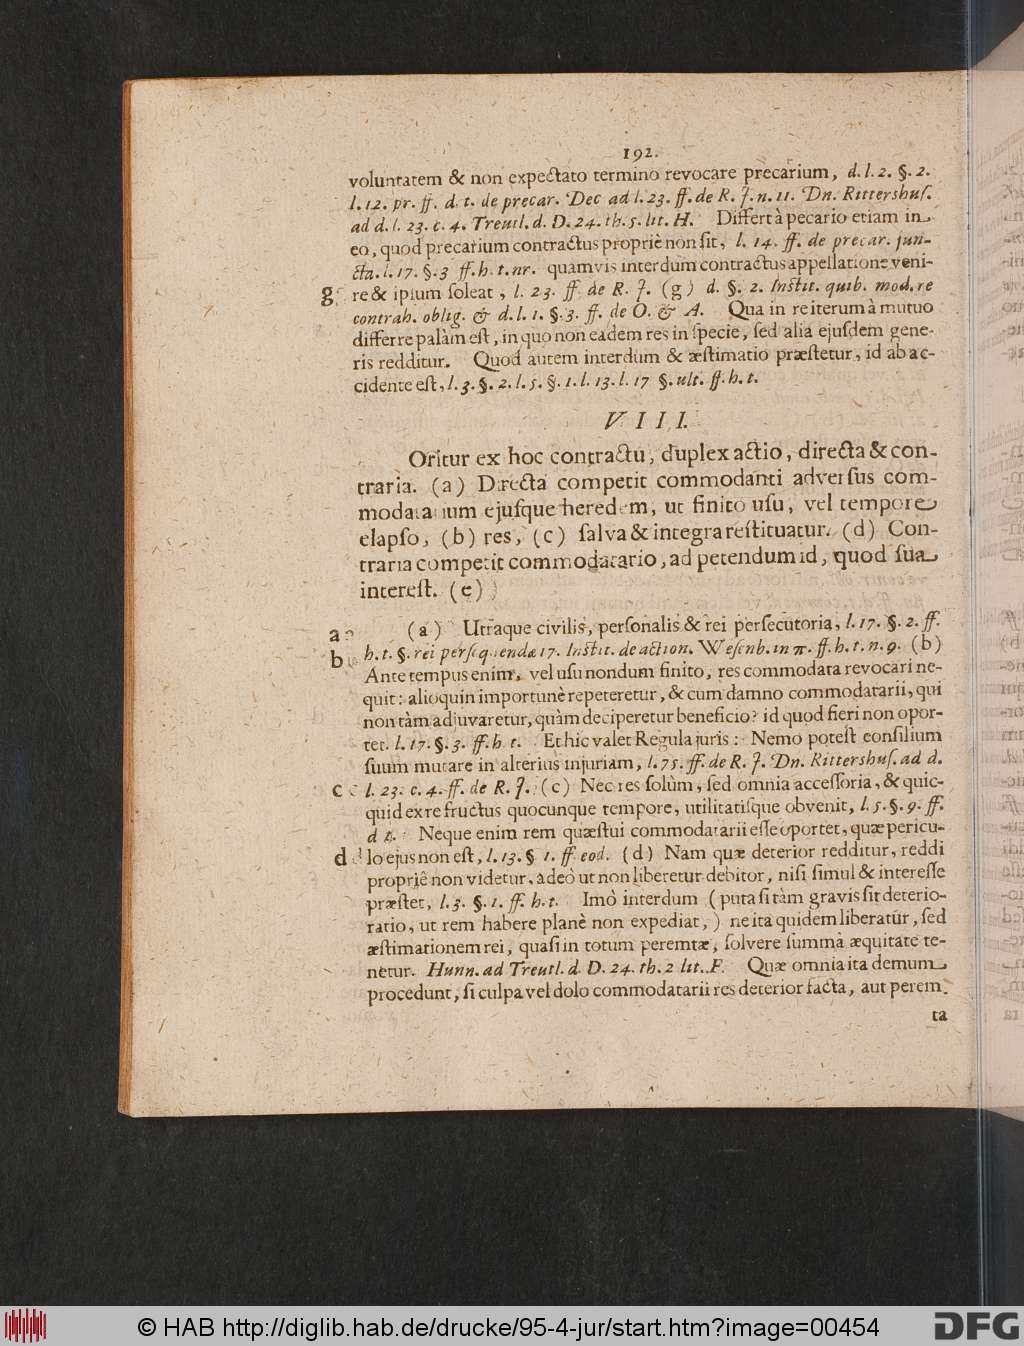 192.
voluntatem & non expectato termino revocare precarium, d. l. 2. §. 2.
l. 12. pr. ff. d. t. de precar. Dec ad l. 23. ff. de R. J. n. 11. Dn. Rittershuſ.
ad d. l. 23. c. 4. Treutl. d. D. 24. th. 5. lit. H. Differt à pecario etiam in
eo, quod precarium contractus propriè non ſit, l. 14. ff. de precar. jun-
cta. l. 17. §. 3 ff. h. t. nr. quamvis interdum contractus appellatione veni-
g re & ipſum ſoleat, l. 23. ff de R. J. (g) d. §. 2. Inſtit. quib. mod. re
contrah. oblig. & d. l. 1. §. 3. ff. de O. & A. Qua in re iterum à mutuo
differre palàm eſt, in quo non eadem res in ſpecie, ſed alia ejuſdem gene-
ris redditur. Quod autem interdum & æſtimatio præſtetur, id ab ac-
cidente eſt, l. 3. §. 2. l. 5. §. 1. l. 13. l. 17 §. ult. ff. h. t.
VIII.
Oritur ex hoc contractu, duplex actio, directa & con-
traria. (a) Directa competit commodanti adverſus com-
modatarium ejuſque heredem, ut finito uſu, vel tempore
elapſo, (b) res, (c) ſalva & integra reſtituatur. (d) Con-
traria competit commodatario, ad petendum id, quod ſua
intereſt. (e)
a (a) Utraque civilis, perſonalis & rei perſecutoria, l. 17. §. 2. ff.
b h. t. §. rei perſequendæ 17. Inſtit. de action. Weſenb. in π. ff. h. t. n. 9. (b)
Ante tempus enim, vel uſu nondum finito, res commodata revocari ne-
quit: alioquin importunè repeteretur, & cum damno commodatarii, qui
non tàm adjuvaretur, quàm deciperetur beneficio? id quod fieri non opor-
tet. l. 17. §. 3. ff. h. t. Et hic valet Regula juris: Nemo poteſt conſilium
ſuum mutare in alterius injuriam, l. 75. ff. de R. J. Dn. Rittershuſ. ad d.
c l. 23. c. 4. ff. de R. J. (c) Nec res ſolùm, ſed omnia acceſſoria, & quic-
quid ex re fructus quocunque tempore, utilitatiſque obvenit, l. 5. §. 9. ff.
d t. Neque enim rem quæſtui commodatarii eſſe oportet, quæ pericu-
d lo ejus non eſt, l. 13. § 1. ff. eod. (d) Nam quæ deterior redditur, reddi
propriè non videtur, adeò ut non liberetur debitor, niſi ſimul & intereſſe
præſtet, l. 3. §. 1. ff. h. t. Imò interdum (puta ſi tàm gravis ſit deterio-
ratio, ut rem habere planè non expediat,) ne ita quidem liberatur, ſed
æſtimationem rei, quaſi in totum peremtæ, ſolvere ſummâ æquitate te-
netur. Hunn. ad Treutl. d. D. 24. th. 2 lit. F. Quæ omnia ita demum
procedunt, ſi culpa vel dolo commodatarii res deterior facta, aut perem
ta
© HAB http://diglib.hab.de/drucke/95-4-jur/start.htm?image=00454
DFG